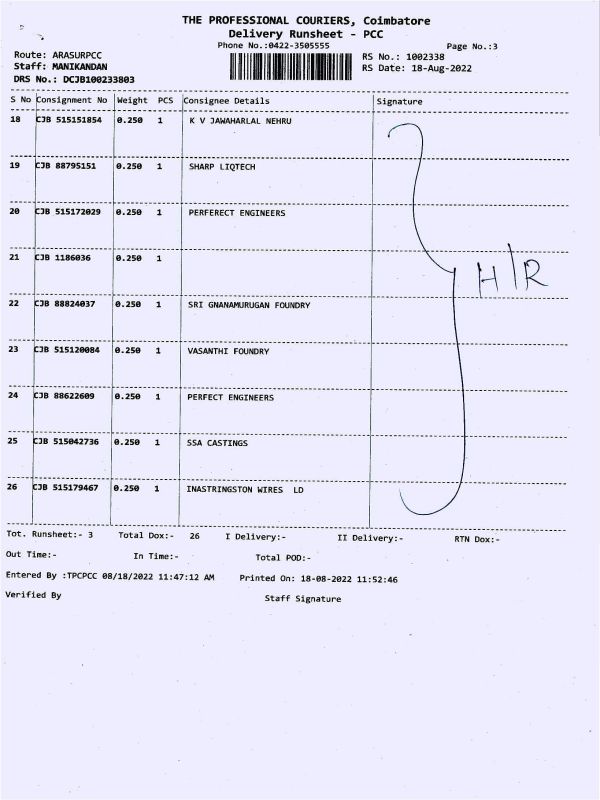 THE PROFESSIONAL COURIERS, Coimbatore
Delivery Runsheet - PCC
Phone No.:0422-3505555 Page No.:3
Route: ARASURPCC RS No.: 1002338
Staff: MANIKANDAN RS Date: 18-Aug-2022
DRS No.: DCJB100233803
S No Consignment No Weight PCS Consignee Details Signature
18 CJB 515151854 0.250 1 K V JAWAHARLAL NEHRU
19 CJB 88795151 0.250 1 SHARP LIQTECH
20 CJB 515172029 0.250 1 PERFERECT ENGINEERS
21 CJB 1186036 0.250 1
H/R
22 CJB 88824037 0.250 1 SRI GNANAMURUGAN FOUNDRY
23 CJB 515120084 0.250 1 VASANTHI FOUNDRY
24 CJB 88622609 0.250 1 PERFECT ENGINEERS
25 CJB 515042736 0.250 1 SSA CASTINGS
26 CJB 515179467 0.250 1 INASTRINGSTON WIRES LD
Tot. Runsheet:- 3 Total Dox:- 26 I Delivery:- II Delivery:- RTN Dox:-
Out Time:- In Time:- Total POD:-
Entered By :TPCPCC 08/18/2022 11:47:12 AM Printed On: 18-08-2022 11:52:46
Verified By Staff Signature